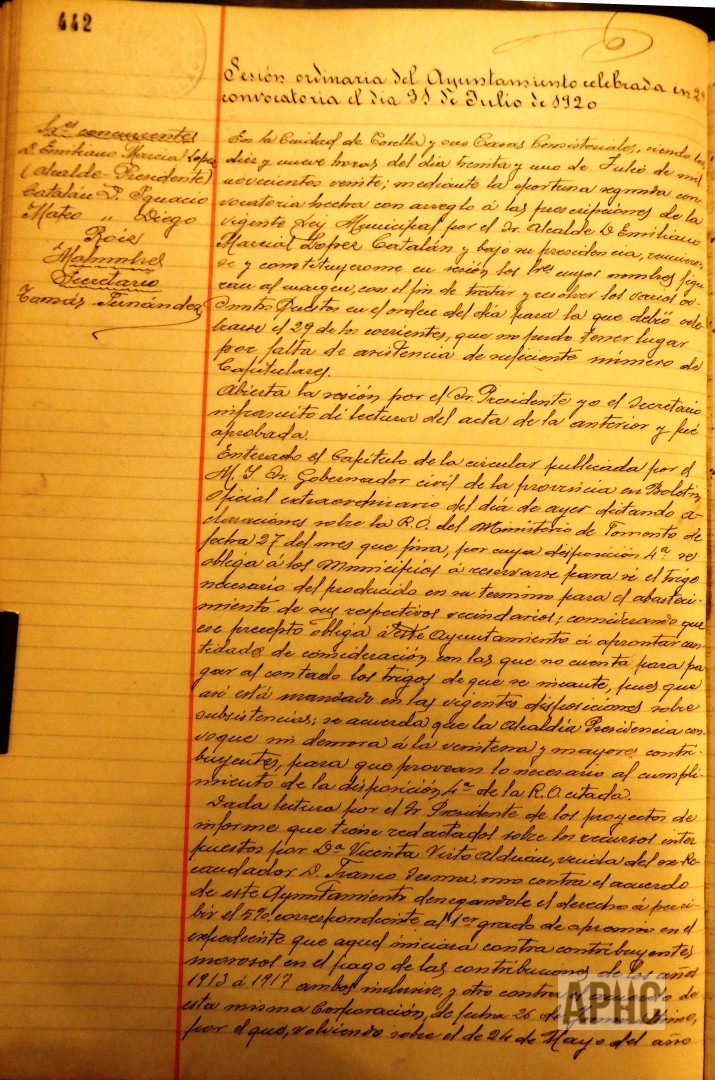 442
Sesión ordinaria del Ayuntamiento celebrada en 2ª
convocatoria el dia 31 de Julio de 1920
Sres concurrentes
D. Emiliano Marcial Lopez
(Alcalde-Presidente)
Catalán D. Ignacio
Mateo " Diego
Roiz
Secretario
Tomás Fernández
En la Ciudad de Corella y sus Casas Consistoriales, siendo las
diez y nueve horas del dia treinta y uno de Julio de mil
novecientos veinte; mediante la oportuna segunda con
vocatoria hecha con arreglo á las prescripciones de la
vigente Ley Municipal por el Sr. Alcalde D. Emiliano
Marcial Lopez Catalán y bajo su presidencia, reunieron
se y constituyeronse en sesión los Sres cuyos nombres figu
ran al margen, con el fin de tratar y resolver los varios a-
suntos puestos en el orden del dia para la que debió cele
brarse el 29 de los corrientes, que no pudo tener lugar
por falta de asistencia de suficiente número de
Capitulares.
Abierta la sesión por el Sr. Presidente yo el Secretario
infrascrito di lectura del acta de la anterior y fué
aprobada.
Enterado el Capítulo de la circular publicada por el
M. I. Sr. Gobernador civil de la provincia en Boletin
Oficial extraordinario del dia de ayer dictando a-
claraciones sobre la R.O. del Ministerio de Fomento de
fecha 27 del mes que fina, por cuya disposición 4ª se
obliga á los Municipios á reservarse para sí el trigo
necesario del producido en su termino para el abasteci-
miento de sus respectivos vecindarios; considerando que
ese precepto obliga á este Ayuntamiento á aprontar can-
tidades de consideración con las que no cuenta para pa
gar al contado los trigos de que se incaute, pues que
asi está mandado en las vigentes disposiciones sobre
subsistencias; se acuerda que la Alcaldía Presidencia con
voque sin demora á la veintena y mayores contri-
buyentes, para que provean lo necesario al cumpli-
miento de la disposición 4ª de la R.O. citada.
Dada lectura por el Sr Presidente de los proyectos de
informe que tiene redactados sobre los recursos inter
puestos por Dª Vicenta Virto Alduán, viuda del ex-Re-
caudador D. Franco uno contra el acuerdo
de este Ayuntamiento denegandole el derecho á perci-
bir el 5% correspondiente al 1er grado de apremio en el
expediente que aquel iniciara contra contribuyentes
morosos en el pago de las contribuciones de los años
1913 á 1917 ambos inclusive, y otro contra acuerdo de
esta misma Corporación, de fecha 26 de
por el que, volviendo sobre el de 24 de Mayo del año
APHC